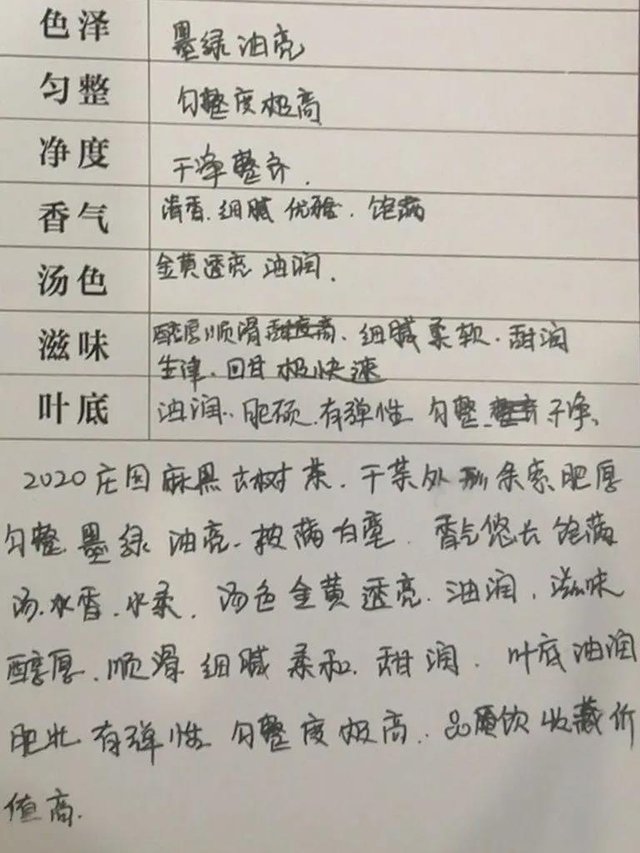 色泽 墨绿油亮
匀整 匀整度极高
净度 干净整齐.
香气 清香.细腻 优雅.饱满
汤色 金黄透亮 油润.
滋味 醇厚顺滑甜度高.细腻柔软.甜润
生津.回甘极快速
叶底 油润.肥硕.有弹性 匀整.整齐干净、
2020庄园麻黑古树茶.干茶外形条索肥厚
匀整.墨绿油亮.披满白毫.香气悠长饱满
汤.水香.水柔.汤色金黄透亮.油润.滋味
醇厚.顺滑细腻柔和.甜润.叶底油润
肥壮有弹性 匀整度极高.品质饮收藏价
值高.